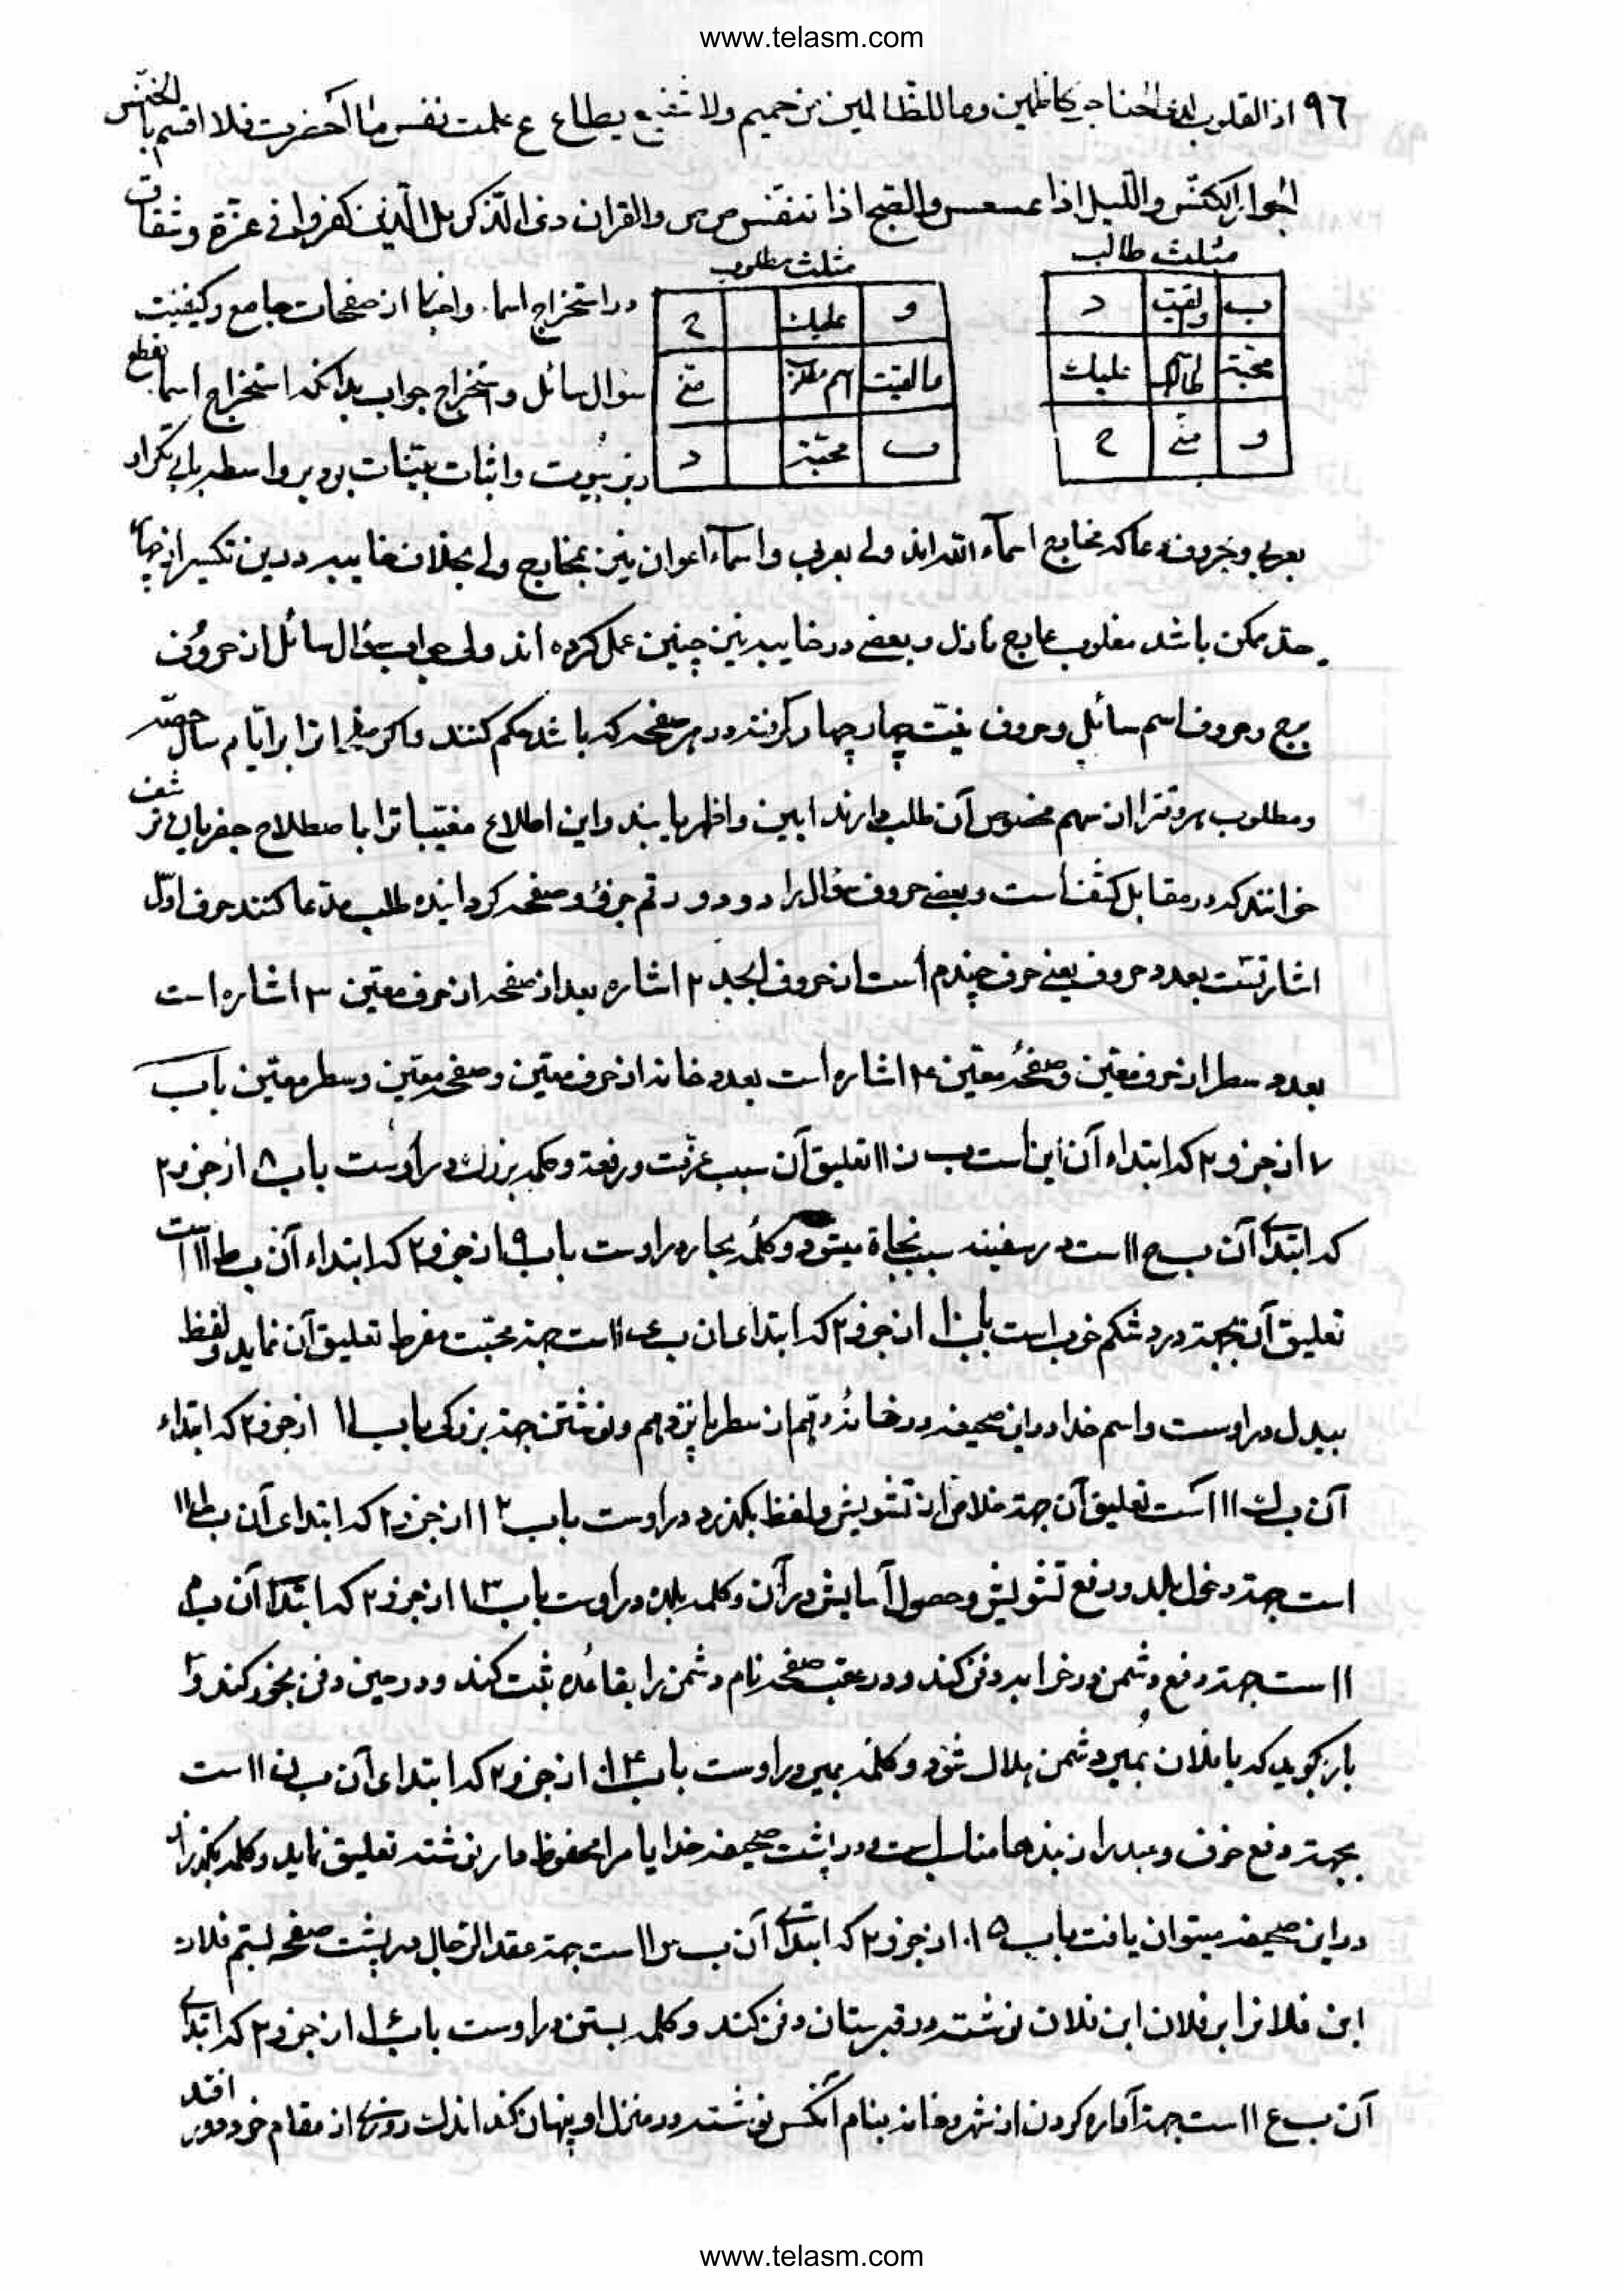 www.telasm.com
٩٦ اذ القلوب لدی الحناجر کاظمین وما للظالمین من حمیم ولا شفیع یطاع ع علمت نفس ما احضرت فلا اقسم بالخنّس
الجوار الکنّس واللّیل اذا عسعس والصّبح اذا تنفّس ص ص والقران ذی الذّکر بل الّذین کفروا فی عزّة وشقاق
مثلث طالب
ب والقیت د
محبّة طالب علیک
و منّی ح
مثلث مطلوب
و علیک ح
ما القیت اسم مطلوب منّی
ب محبّة د
در استخراج اسماء واخبار از صفحات جامع وکیفیّت
سؤال سائل و استخراج جواب بدانکه استخراج اسما بقطع
زبر بیوت واثبات بیّنات بود بر واسطه بلی تکرار
بعربی و حروف مدعا که بخارج اسمآء الله اند ولی بعربی واسمآء اعوان نیز بخارج ولی بخلاف خابیه ودرین تکسیر از
حدّ ممکن باشد مغلوب نازل وبعضی در خابیه نیز چنین عمل کرده اند ولی جواب سؤال سائل از حروف
برج وحروف اسم سائل وحروف نیّت چهار چهار گرفته در هر صفحه که باشد حکم کنند واکر را بر ایّام سال حصّه
ومطلوب هر وقترا از سهم مخصوص آن طلب دارند ابین واظهر یابند واین اطلاع مغیّباترا با صطلاح جفریان
خوانند که در مقابل کشف است وبعضی حروف سؤال را دو دو رقم جزؤ وصفحه کردانیده طلب مدعا کنند حرف اوّل
اشارتست بعدد حروف یعنی حرف چندم است از حروف ابجد ٢ اشاره بعدد صفحه از حرف معیّن ٣ اشاره است
بعدد سطر از حرف معیّن وصفحه معیّن ۴ اشاره است بعدد خانه از حرف معیّن وصفحه معیّن وسطر معیّن باب
٧ از جزو ٢ که ابتداء آن این است ب ز ١١ تعلیق آن سبب عزّت ورفعة وکلمه بزرک در اوست باب ٨ از جزو ٢
که ابتدای آن ب ح ١١ ست در سفینه سبب نجاة میشود وکلمه بحار در اوست باب ٩ از جزو ٢ که ابتداء آن ب ط ١١ است
تعلیق آن بجهة درد شکم خوب است باب ١٠ از جزو ٢ که ابتدای ان ب ی ١١ ست جهة محبّت مفرط تعلیق آن نماید ولفظ
بیدل در اوست واسم خدا در این صحیفه در خانه دهم از سطر پانزدهم ونوشتن جهة بزرکی باب ١١ از جزو ٢ که ابتداء
آن ب ک ١١ است تعلیق آن جهة خلاص از تشویش ولفظ بکذرد در اوست باب ١٢ از جزو ٢ که ابتدای آن ب ل ١١
است جهة دخول بلد ودفع تشویش وحصول آسایش در آن وکلمه بلده در اوست باب ١٣ از جزو ٢ که ابتدای آن ب م
١١ ست جهة دفع دشمن در خرابه دفن کند ودر عقب صفحه نام دشمن را بقاعده ثبت کند ودر حین دفن بخور کند و ٢
بار بگوید که یا فلان بمیر دشمن هلاک شود وکلمه بمیر در اوست باب ١۴ از جزو ٢ که ابتدای آن ب ن ١١ ست
بجهة دفع خوف وعبد را از بندها مناسب است ودر پشت صحیفه خدایا مرا محفوظ دار نوشته تعلیق نماید وکلمه بکذرد را
در این صحیفه میتوان یافت باب ١۵ از جزو ٢ که ابتدای آن ب س ١١ ست جهة عقد الرّجال در پشت صفحه بستم فلان
ابن فلان را بر فلان ابن فلان نوشته در قبرستان دفن کند وکلمه بستن در اوست باب ١۶ از جزو ٢ که ابتدای
آن ب ع ١١ ست جهة آواره کردن از شهر وخانه بنام آنکس نوشته در منزل او پنهان کند اندک روزی از مقام خود دور افتد
www.telasm.com